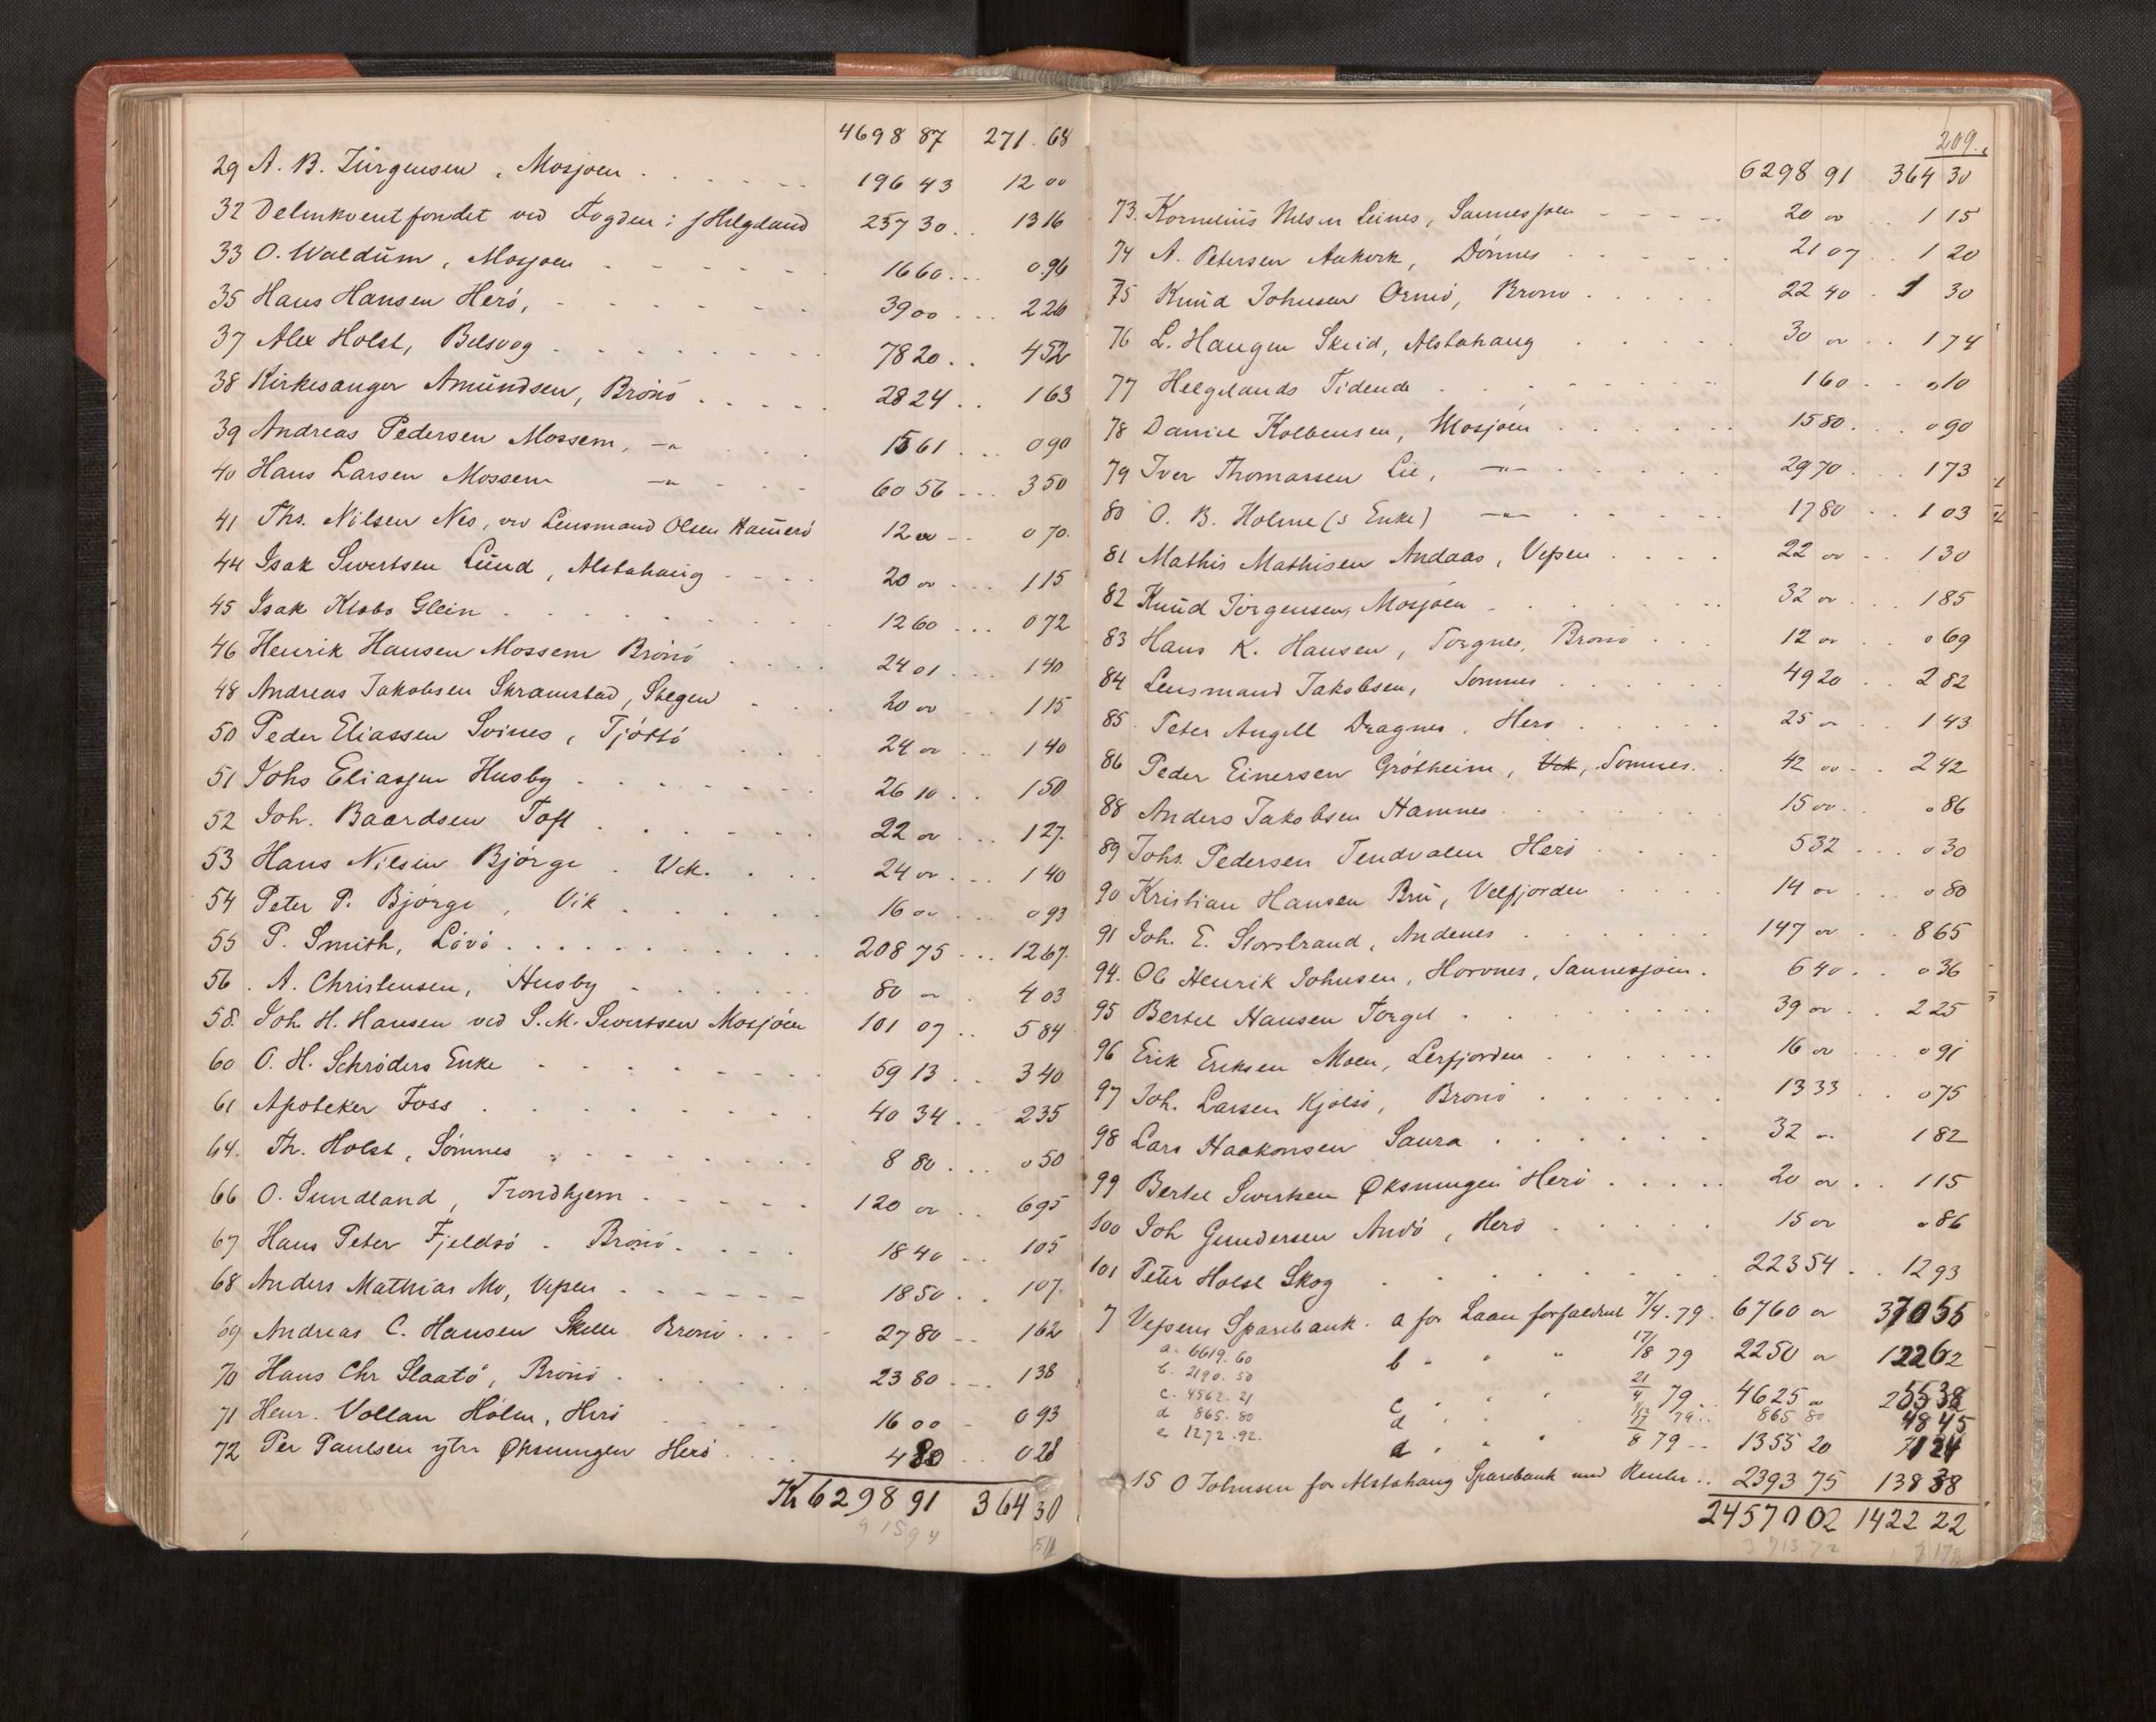 4698 87 271.68
29 A. B. Jürgensen, Mosjøen 196 43 12 00
32 Delinkventfondet ved Fogden i s Helgeland 237 30 13 16
33 O. Waldüm, Mosjøen 16 60 0.96
35 Hans Hansen Herö, 39 00 2 26
37 Alex Holst, Belsvog 78 20 4 52
38 Kirkesanger Amündsen, Brönö 28 24 1 63
39 Andreas Pedersen Mossem, —"— 15 61 0 90
40 Hans Larsen Mossem —"— 60 56 3 50
41 Ths. Nilsen Nes, ved Lensmand Olsen 12 00 0 70.
44 Isak Sivertsen Lünd, Alstahaug 20 00 1 15
45 Isak Klobo Glein 12 60 0 72
46 Henrik Hansen Mossem Brönö 24 01 1 40
48 Andreas Jakobsen Skramstad, Stegen 20 00 1 15
50 Peder Eliassen Svines, Tjöttö 24 00 1 40
51 Johs Eliassen Husby 26 10 1 50
52 Joh. Baardsen Toft 22 00 1 27.
53 Hans Nilsen Bjørge. Vik. 24 00 1 40
54 Peter P. Bjørge, Vik 16 00 0 93
55 P. Smith, Lövö 208 75 12 67.
56. A. Christensen, Husby 80 00 4 03
58. Joh. H. Hansen ved S. M. Sivertsen Mosjøen 101 07 5 84
60 O. H. Schröders Enke 59 13 3 40
61 Apoteker Foss 40 34 2 35
64. Th. Holst, Sömnes 8 80 0 50
66 O. Sundland, Trondhjem 120 00 6 95
67 Hans Peter Fjeldsö. Brönö. 18 40 1 05
68 Anders Mathias Mo, Vefsen 18 50 1 07.
69 Andreas C. Hansen Skille Brönö 27 80 1 62
70 Hans Chr Slaatö, Brönö 23 80 1 38
71 Henr. Vollan Holm, Herö 16 00 0 93
72 Per Paulsen ytre Øksningen Herö 4 80 0 28
Kr 6298 91 364 30
209.
6298 91 364 30
73. Kornelius Nilsen Leines, Sannesjøen 20 00 1 15
74 A. Petersen, Dönnes 21 07 1 20
75 Knud Johnsen Ornö, Brönö 22 40 1 30
76 L. Haugen Skeid, Alstahaug 30 00 1 74
77 Helgelands Tidende 1 60 0 10
78 Daniel Kolbensen, Mosjøen 15 80 0 90
79 Iver Thomassen Lie, —"— 29 70 1 73
80 O. B. Holme (s Enke) —"— 17 80 1 03
81 Mathis Mathisen Andaas, Vefsen 22 00 1 30
82 Knud Jörgensen, Mosjøen 32 00 1 85
83 Hans K. Hansen, Torgnes, Brönö 12 00 0 69
84 Lensmand Jakobsen, Sömnes 49 20 2 82
85. Peter Angell Dragnes, Herö 25 00 1 43
86 Peder Einersen Grötheim, Vik, Sömnes. 42 00 2 42
88 Anders Jakobsen Hamnes 15 00 0 86
89 Johs. Pedersen Tendvalen Herö 5 32 0 30
90 Kristian Hansen Brü, Velfjorden 14 00 0 80
91 Joh. E. Storstrand, Andenes 147 00 8 65
94. Ole Henrik Johnsen, Horvnes, Sannesjøen. 6 40 0 36
95 Bertel Hansen Torget 39 00 2 25
96 Erik Eriksen Moen, Lerfjorden 16 00 0 91
97 Joh. Larsen Kjølsö, Brönö 13 33 0 75
98 Lars Haakonsen Saura 32 00 1 82
99 Bertel Sivertsen Øksningen Herö 20 00 1 15
100 Joh Gundersen Andö, Herö 15 00 0 86
101 Peter Holst Skog 223 54 12 93
7 Vefsens Sparebank. a for Laan forfaldent 7/4. 79. 6760 00 370 55
a. 6619. 60
b " " " 17/8 79 2250 00 122 62
b. 2190. 50
c " " 21/4 79 4625 00
c. 4562. 21
d 79 865 80 48 45
d 865. 80
8 79 1355 20 71 24
e 1272. 92.
15 O Johnsen for Alstahaug Sparebank med Renter 2393 75 138 38
24570 02 1422 22